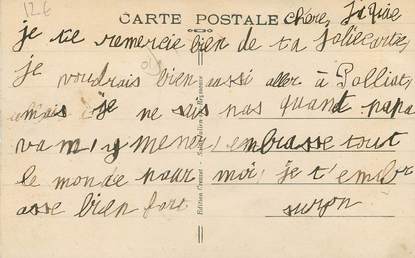 12€
CARTE POSTALE
chère
je te remercie bien de ta jolie carte,
je voudrais bien aussi aller à Polliat,
mais je ne sais pas quand papa
va m'y mener, embrasse tout
le monde pour moi, je t'embr
asse bien fort
suzon
Edition Cromet